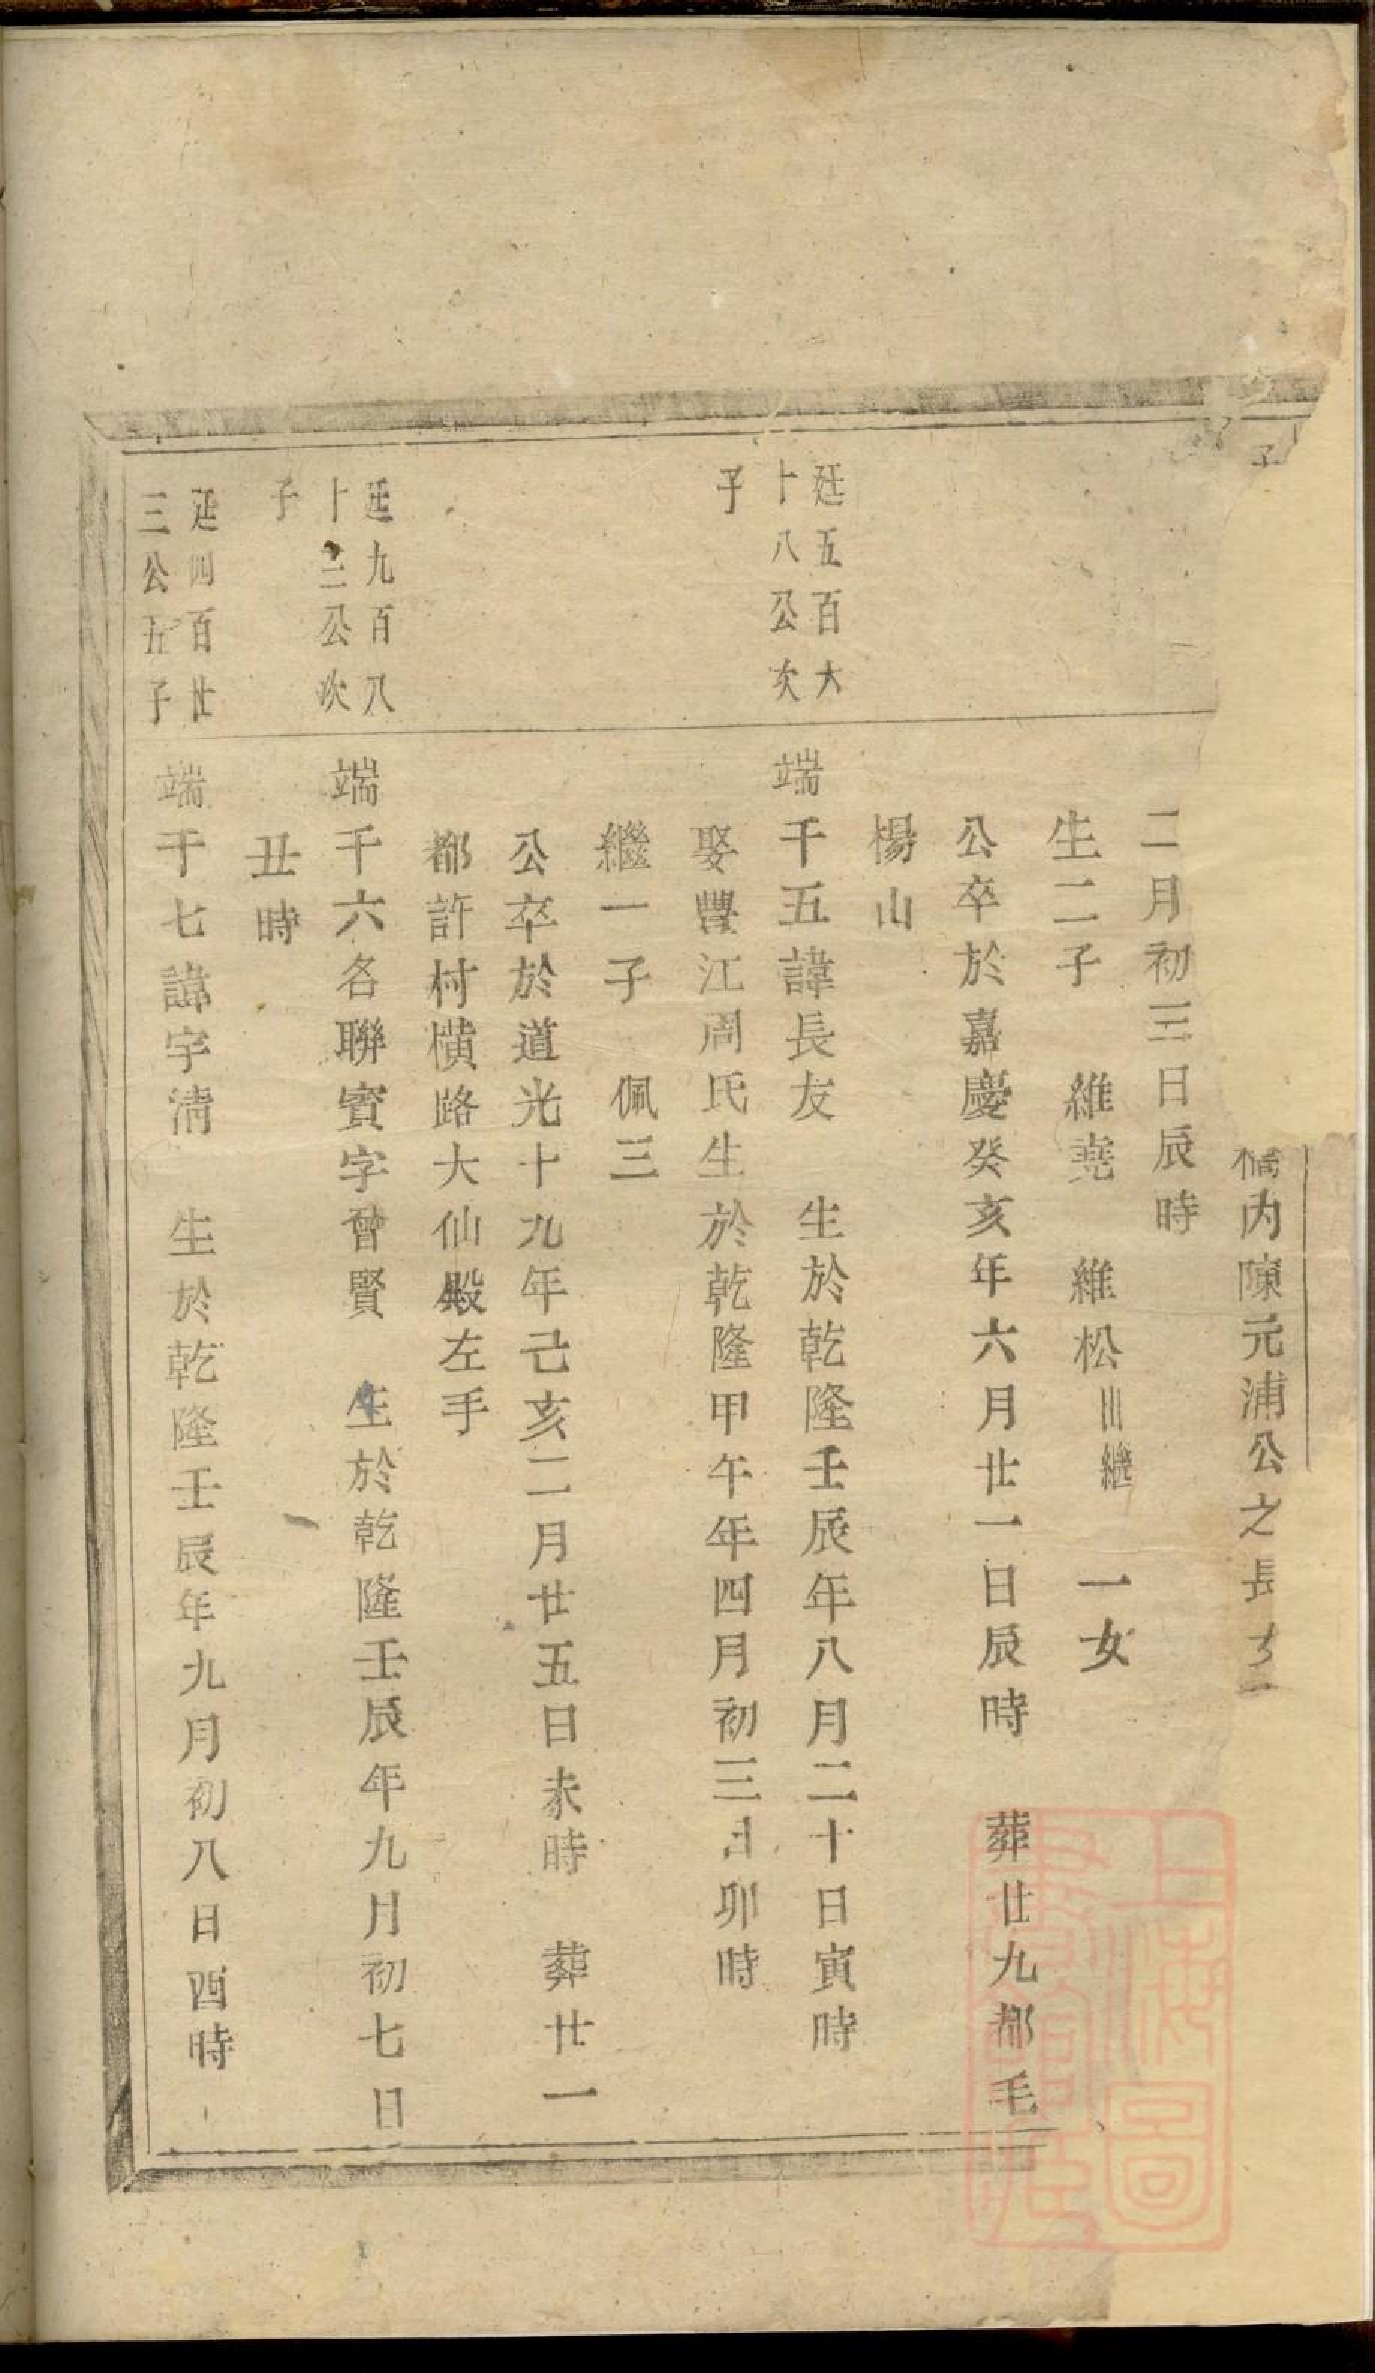 子
橋內陳元浦公之長
二月初三日辰時
生二子　維堯　維松出繼　一女
公卒於嘉慶癸亥年六月廿一日辰時　葬廿九都毛
楊山
廷五百六
十八公次
子
端千五諱長友　生於乾隆壬辰年八月二十日寅時
娶豐江周氏生於乾隆甲午年四月初三日卯時
繼一子　佩三
公卒於道光十九年己亥二月廿五日未時　葬廿一
都許村橫路大仙殿左手
廷九百八
十三公次
子
端千六名聯賓字曾賢　生於乾隆壬辰年九月初七日
丑時
廷四百廿
三公五子
端千七諱宇淸　生於乾隆壬辰年九月初八日酉時
上海圖
書館藏